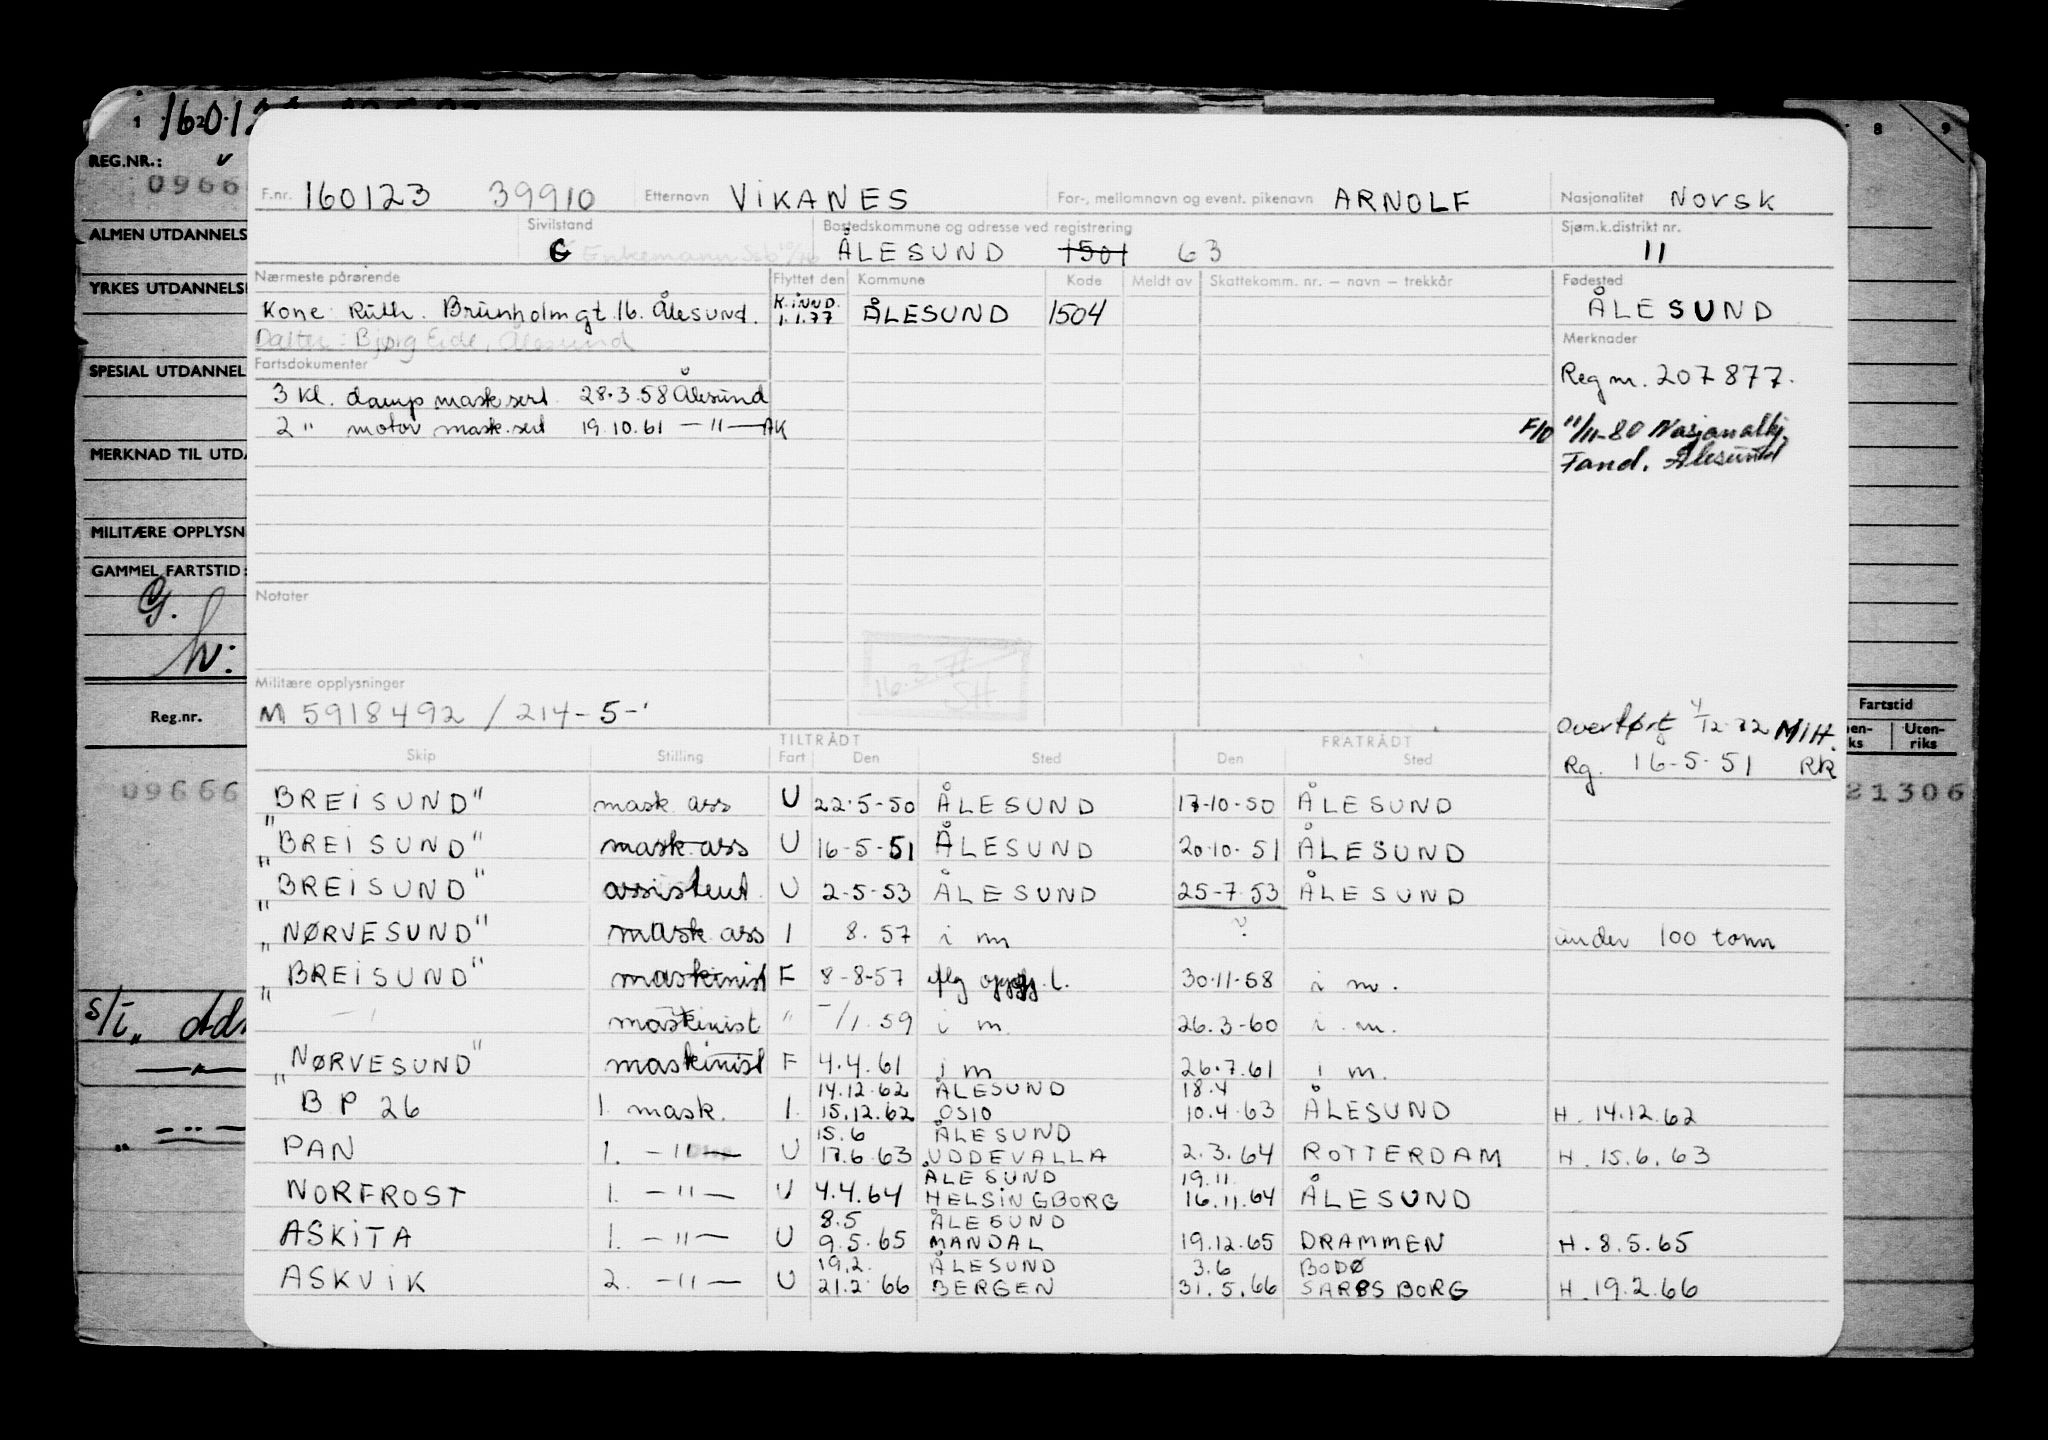 F.nr. 160123 39910 Etternavn VIKANES For-, mellomnavn og event. pikenavn ARNOLF Nasjonalitet Norsk
Sivilstand G Enkemann Bostedskommune og adresse ved registrering ÅLESUND 1501 63 Sjøm.k.distrikt nr. 11
Nærmeste pårørende Flyttet den Kommune Kode Meldt av Skattekomm. nr. — navn — trekkår Fødested
Kone: Ruth. Brunholmgt. 16. Ålesund. K.INND. 1.1.77 ÅLESUND 1504 ÅLESUND
Datter: Bjørg Eide, Ålesund
Merknader
Fartsdokumenter
Reg nr. 207877.
3 kl. damp mask sert. 28.3.58 Ålesund
2 " motor mask. sert 19.10.61 — " — AK
F/O 11/11-80 Nasjonalhj.
Fand. Ålesund
Notater
16.3.71
SH
Militære opplysninger
M 5918492 / 214-5-'
Overført 4/12-72 MIH.
Rg. 16-5-51 RK
TILTRÅDT FRATRÅDT
Skip Stilling Fart Den Sted Den Sted
"BREISUND" mask. ass U 22-5-50 ÅLESUND 17-10-50 ÅLESUND
"BREISUND" mask. ass U 16-5-51 ÅLESUND 20-10-51 ÅLESUND
"BREISUND" assistent U 2-5-53 ÅLESUND 25-7-53 ÅLESUND
"NØRVESUND" mask. ass I 8.57 i m ? under 100 tonn
"BREISUND" maskinist F 8-8-57 iflg oppg. l. 30-11-58 i m.
— " maskinist " -/1.59 i m. 26.3-60 i m.
"NØRVESUND" maskinist F 4.4.61 i m 26.7.61 i m.
14.12.62 ÅLESUND 18.4
B P 26 1. mask. I. 15.12.62 OSLO 10.4.63 ÅLESUND H. 14.12.62
15.6 ÅLESUND
PAN 1. — " — U 17.6.63 UDDEVALLA 2.3.64 ROTTERDAM H. 15.6.63
ÅLESUND 19.11
NORFROST 1. — " — U 4.4.64 HELSINGBORG 16.11.64 ÅLESUND
8.5 ÅLESUND
ASKITA 1. — " — U 9.5.65 MANDAL 19.12.65 DRAMMEN H. 8.5.65
19.2. ÅLESUND 3.6 BODØ
ASKVIK 2. — " — U 21.2.66 BERGEN 31.5.66 SARPSBORG H. 19.2.66
1 2
REG.NR.:
0966
ALMEN UTDANNELS
YRKES UTDANNELS
SPESIAL UTDANNEL
MERKNAD TIL UTDA
MILITÆRE OPPLYSN
GAMMEL FARTSTID:
G.
hv:
Reg.nr.
09666
s/i
8 9
Fartstid
en-ks Uten-riks
21306